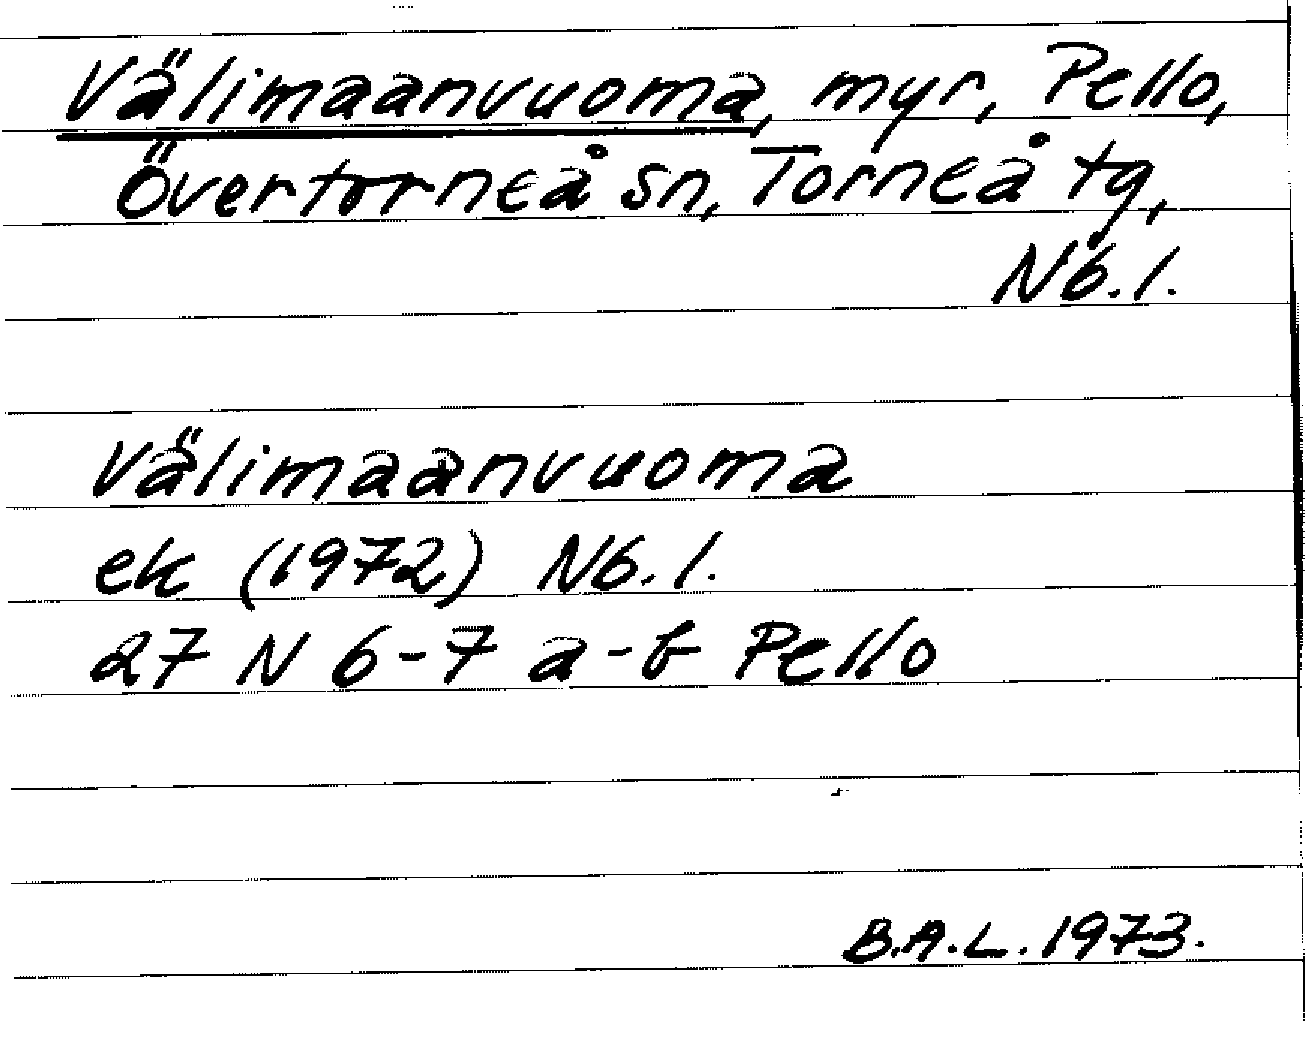 Välimaanvuoma, myr, Pello,
Övertorneå sn, Torneå tg,
Nb. l.
Välimaanvuoma
ek (1972) Nb. l.
27 N 6-7 a-b Pello
B.A.L. 1973.